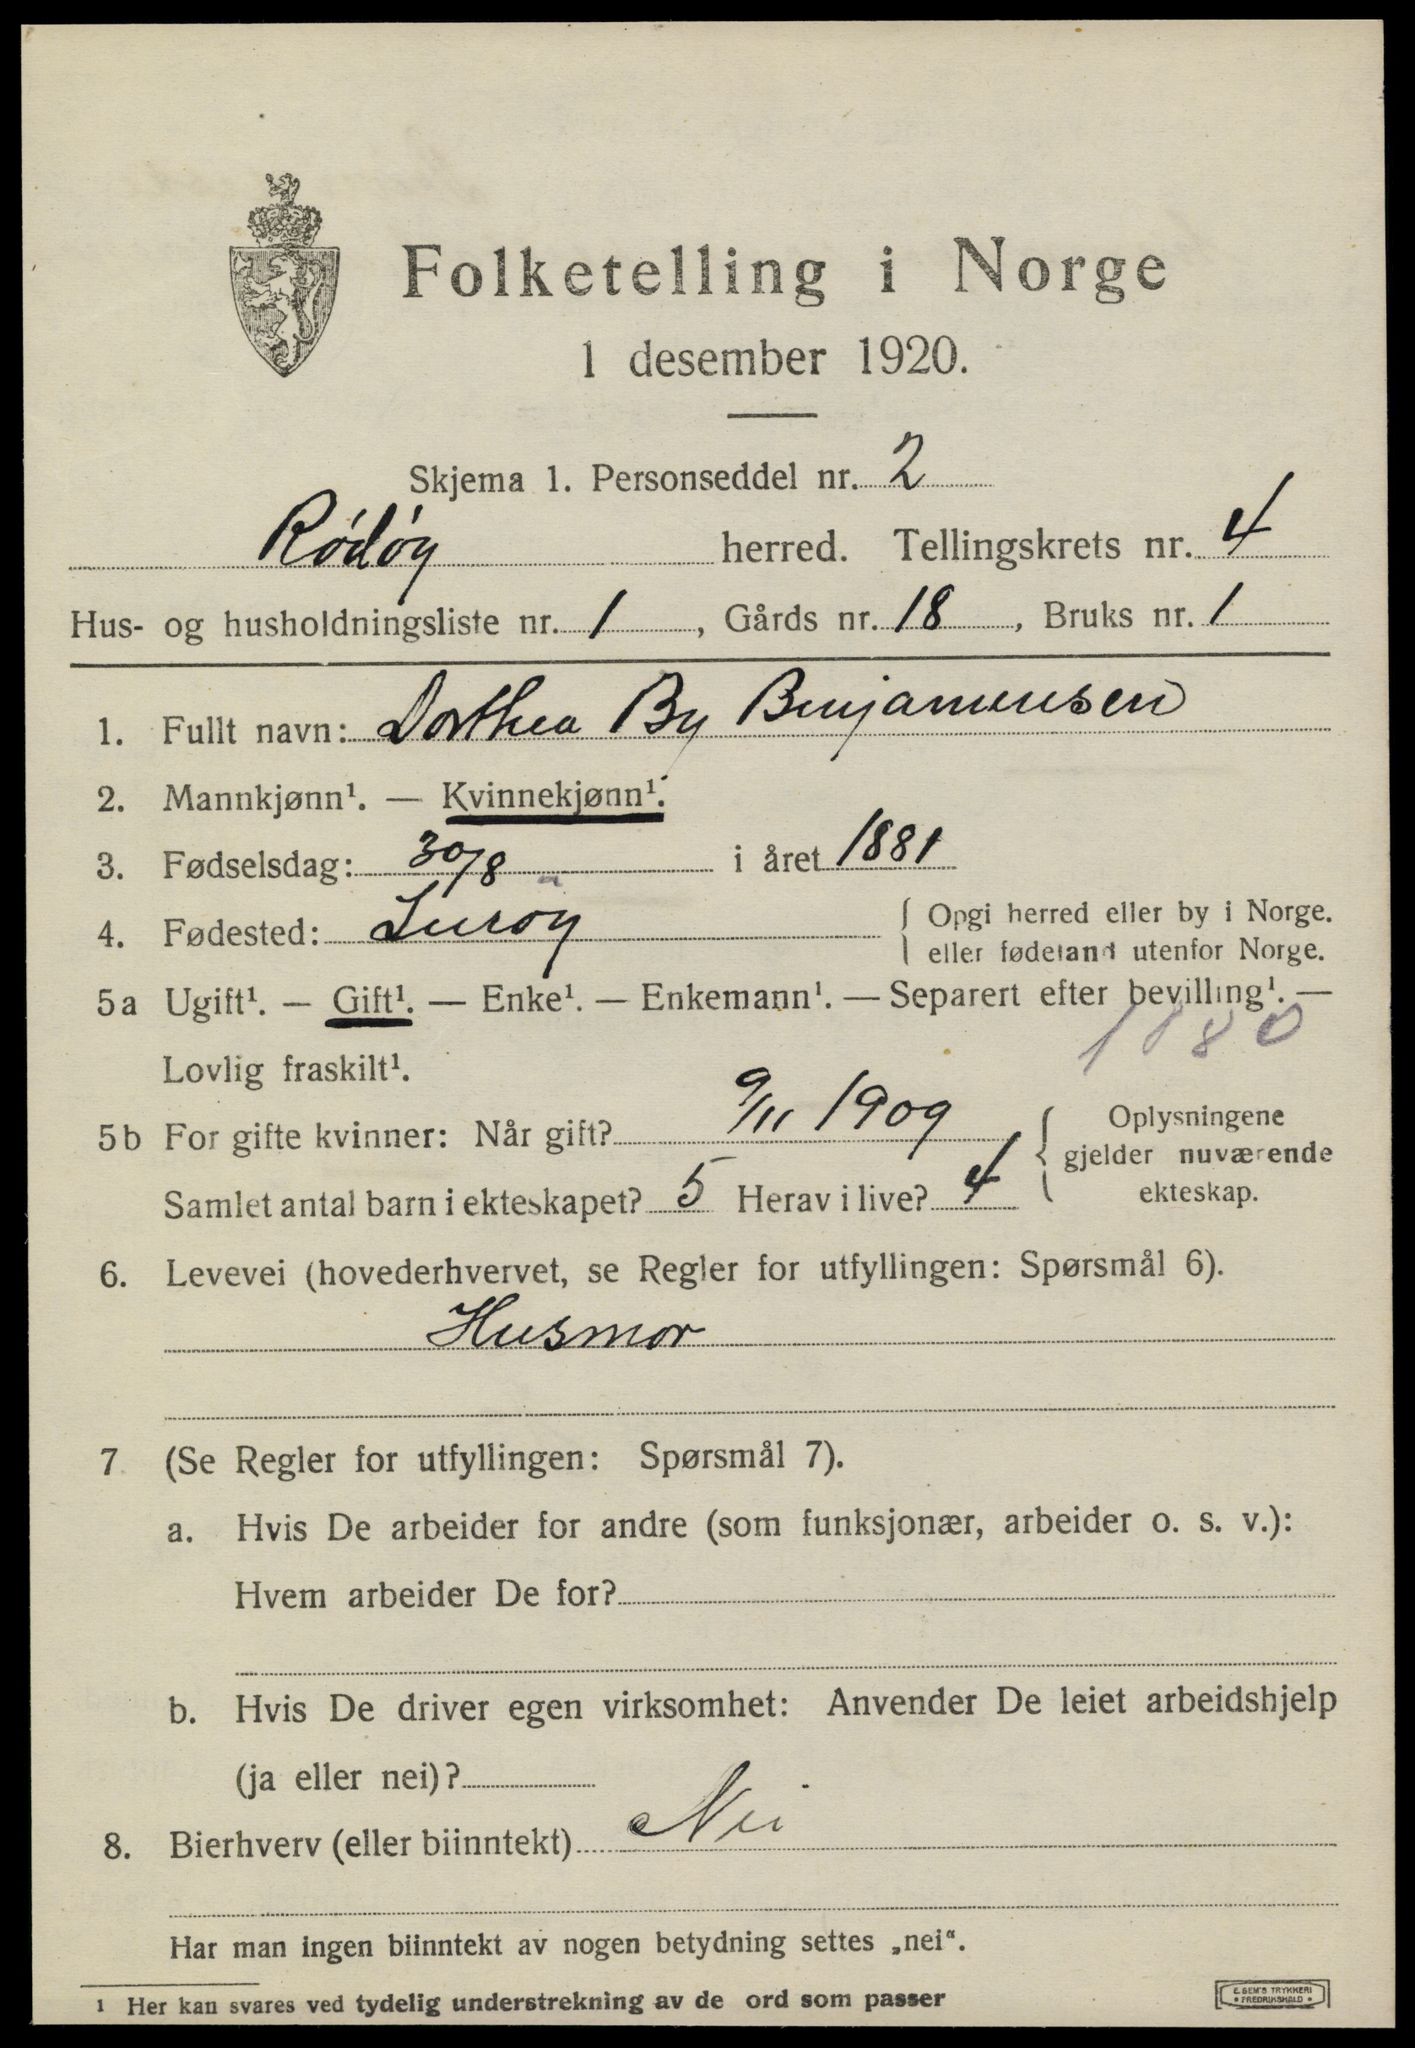 Folketelling i Norge
1 desember 1920.
Skjema 1. Personseddel nr. 2
Rødøy herred. Tellingskrets nr. 4
Hus- og husholdningsliste nr. 1, Gårds nr. 18, Bruks nr. 1
1. Fullt navn: Dorthea By Benjaminsen
2. Mannkjønn¹. — Kvinnekjønn¹.
3. Fødselsdag: 30/8 i året 1881
4. Fødested: Lurøy { Opgi herred eller by i Norge.
eller fødeland utenfor Norge.
5a Ugift¹. — Gift¹. — Enke¹. — Enkemann¹. — Separert efter bevilling¹. —
Lovlig fraskilt¹. 1180
5b For gifte kvinner: Når gift? 9/11 1909 { Oplysningene
gjelder nuværende
ekteskap.
Samlet antal barn i ekteskapet? 5 Herav i live? 4
6. Levevei (hovederhvervet, se Regler for utfyllingen: Spørsmål 6).
Husmor
7 (Se Regler for utfyllingen: Spørsmål 7).
a. Hvis De arbeider for andre (som funksjonær, arbeider o. s. v.):
Hvem arbeider De for?
b. Hvis De driver egen virksomhet: Anvender De leiet arbeidshjelp
(ja eller nei)?
8. Bierhverv (eller biinntekt) Nei
Har man ingen biinntekt av nogen betydning settes „nei“.
¹ Her kan svares ved tydelig understrekning av de ord som passer
E. SEM'S TRYKKERI
• FREDRIKSHALD •